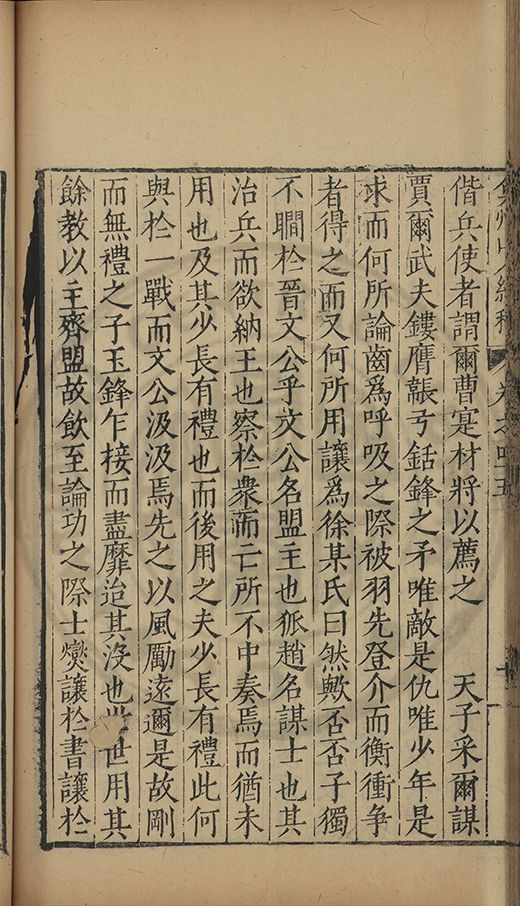 偕兵使者謂爾曹寔材將以薦之　天子采爾謀
賈爾武夫鏤膺韔弓銛鋒之矛唯敵是仇唯少年是
求而何所論齒爲呼吸之際被羽先登介而衡衝爭
者得之而又何所用讓爲徐某氏曰然歟否否子獨
不瞷於晉文公乎文公名盟主也狐趙名謀士也其
治兵而欲納王也察於衆而亡所不中奏焉而猶未
用也及其少長有禮也而後用之夫少長有禮此何
與於一戰而文公汲汲焉先之以風勵遠邇是故剛
而無禮之子玉鋒乍接而盡靡迨其沒也世用其
餘教以主齊盟故飲至論功之際士燮讓於書讓於